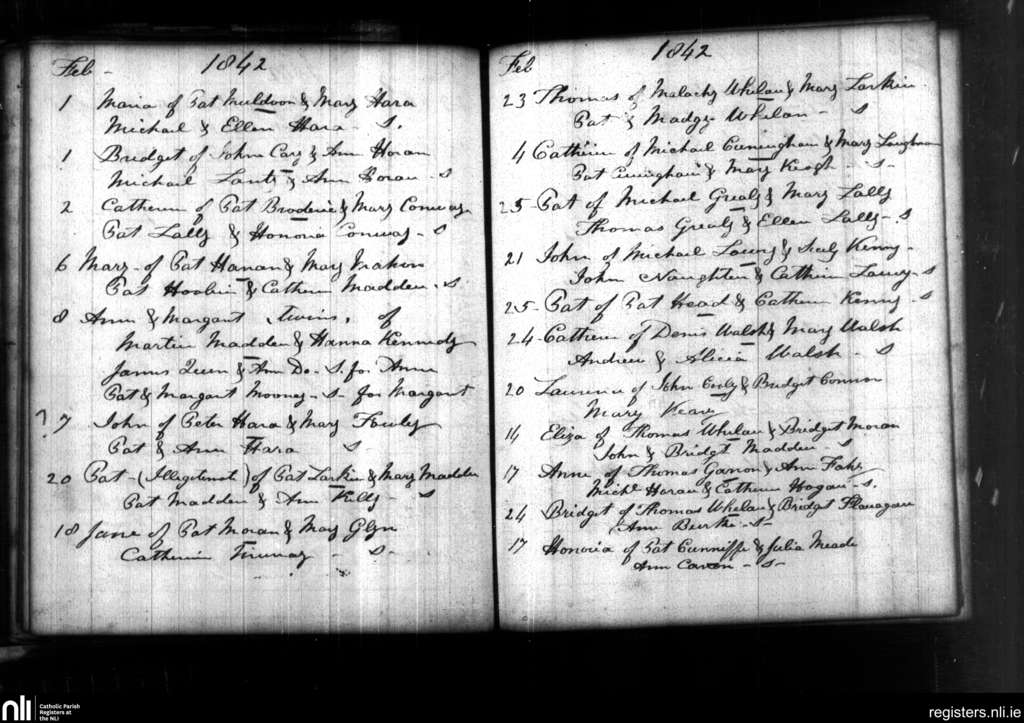 Feb - 1842
1 Maria of Pat Muldoon & Mary Hara
Michael & Ellen Hara - S.
1 Bridget of John Cary & Ann Horan
Michael & Ann Horan - S
2 Cathern of Pat Broderic & Mary Conway
Pat Lally & Honoria Conway - S
6 Mary - of Pat Hanan & Mary
Pat & Cathern Madden - S
8 Ann & Margart twins, of
Martin Madden & Hanna Kennedy
James Quin & Ann Do - S. for Anne
Pat & Margart Mooney - S - for Margart
? 7 John of Peter Hara & Mary
Pat & Ann Hara S
20 Pat - (Illegitimate) of Pat Larkin & Mary Madden
Pat Madden & Ann Kelly - S
18 Jane of Pat Moran & Mary Glyn
Catherin - S -
Feb 1842
23 Thomas of Malachy Whelan & Mary Larkin
Pat & Madge Whelan - S
4 Catherin of Michael Cuningham & Mary
Pat Cuningham & Mary Keogh - S -
25 - Pat of Michael Grealy & Mary Lally
Thomas Grealy & Ellen Lally - S
21 John of Michael & Kenny -
John Naughten & Cathern - S
25 - Pat of Pat Head & Cathern Kenny - S
24 - Cathern of Denis Walsh & Mary Walsh
Andrew & Alicia Walsh - S
20 Laurence of John & Bridget Connor
Mary
14 Eliza of Thomas Whelan & Bridget Moran
John & Bridget Madden S
17 Anne of Thomas & Ann Fahy
Michl Horan & Cathern Hogan - S.
24 Bridget of Thomas Whelan & Bridget Flanagan
Ann Burke - S -
17 Honoria of Pat Cunniffe & Julia Meade
Ann - S -
nli Catholic Parish
Registers at
the NLI
registers.nli.ie